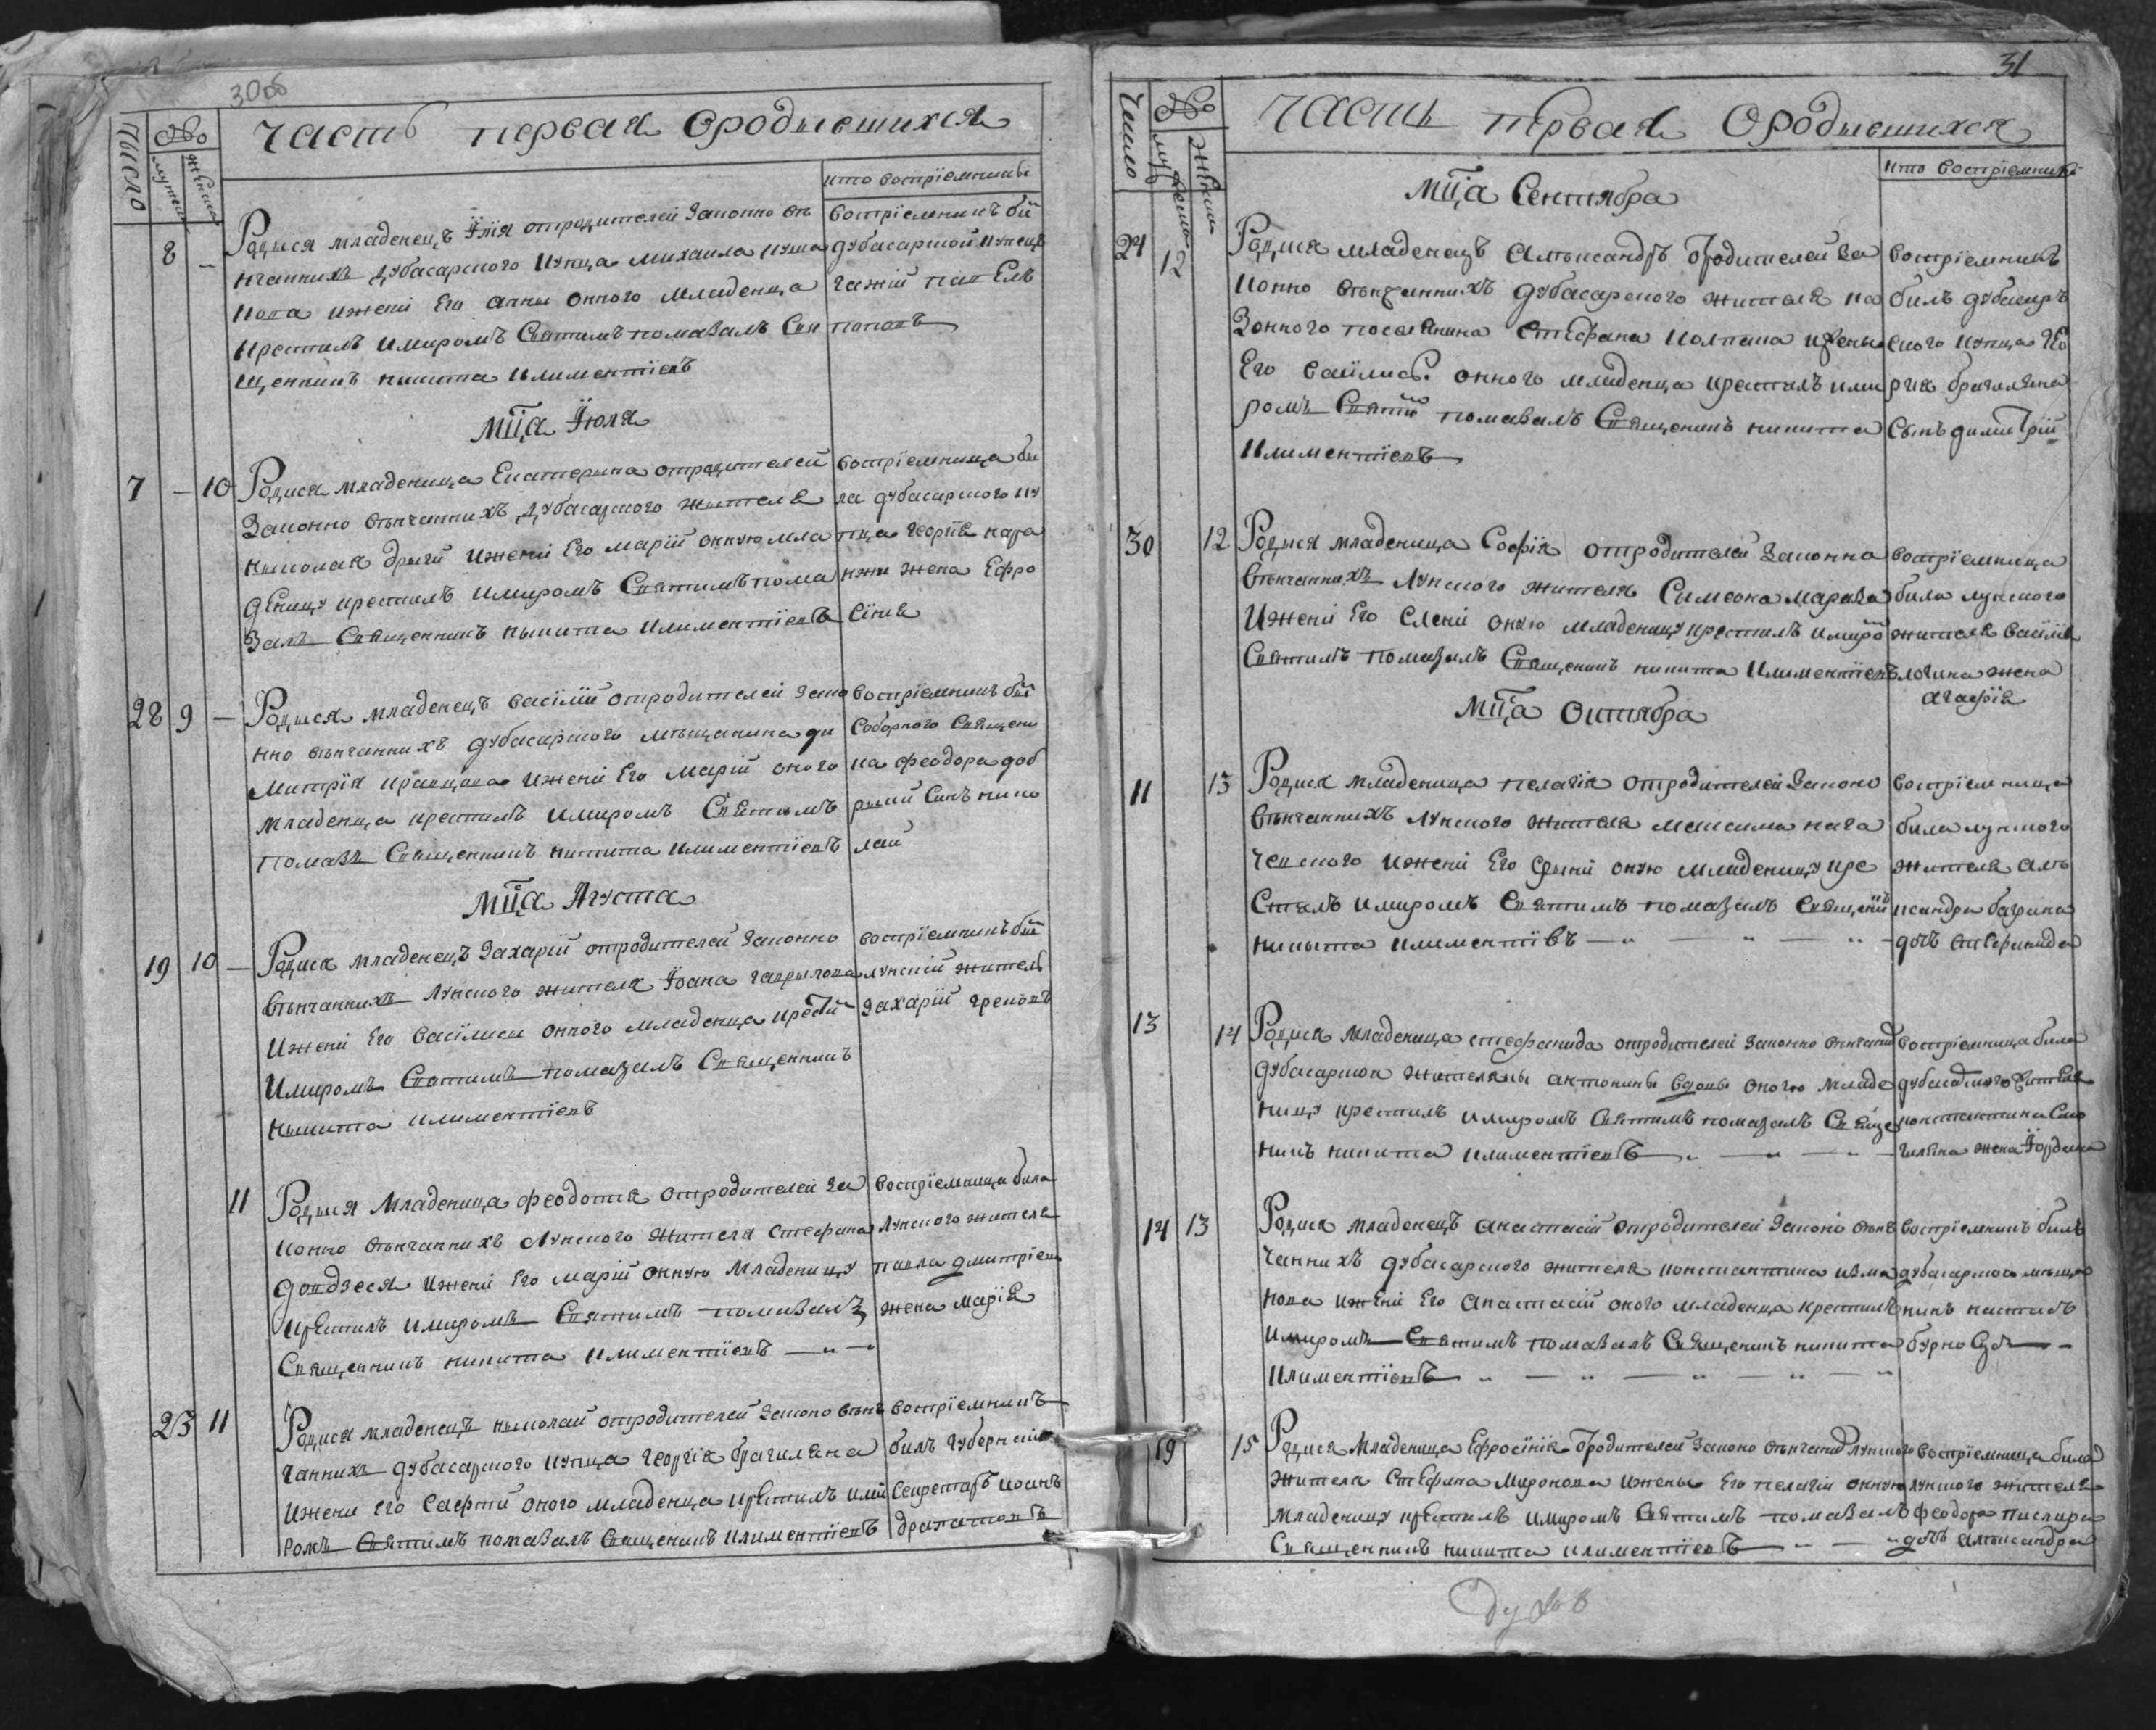 30об
Часть первая Ородившихся
число № мужеск женска
кто восприемники
8 - Родися младенецъ Илїя отродителей законно вѣ
нчанихъ дубасарского купца михаила куша
нова ижени Его анны онного младенца
крестилъ имиромъ Святимъ помазалъ Свя
щенникъ никита климентїевъ
восприемникъ бил
дубасарской купецъ
попопъ
мца Їюля
7 - 10 Родися младеница Екатерина отродителей
законно вѣнчаннихъ дубасарского жителя
николая ижени Его марїи онную мла
деницу крестилъ имиромъ Святимъ пома
залъ Священникъ никита климентїевъ
восприемница би
ла дубасарского ку
пца георгїя кара
жена Ефро
сїния
28 9 - Родися младенецъ василїй отродителей зако
нно вѣнчаннихъ дубасарского мѣщанина ди
митрїя кравцова ижени Его марїи оного
младенца крестилъ имиромъ Святимъ
помазъ Священникъ никита климентїевъ
восприемникъ бил
Соборного Священи
ка феодора доб
Синъ нико
лай
мца Августа
19 10 - Родися младенецъ Захарїй отродителей законно
вѣнчаннихъ лунского жителя Їоана гаврилова
ижени Его василиси онного младенца крести
имиромъ Святимъ помазалъ Священникъ
никита климентїевъ
восприемникъ бил
лунскій житель
Захарїй грековъ
11 Родися Младеница феодотия отродителей за
конно вѣнчаннихъ Лунского жителя стефана
ижени Его марїи онную младеницу
крестилъ имиромъ Святимъ помазалъ
Священникъ никита климентїевъ
восприемница била
лунского жителя
павла дмитрїева
жена марїя
23 11 Родися младенецъ николай отродителей законо вѣнъ
чаннихъ дубасарского купца георгїя брагиляна
ижени его оного младенца крестилъ ими
ромъ Святимъ помазалъ Священикъ климентїевъ
восприемникъ
билъ губернскій
Секретаръ иоанъ
31
Часть первая Ородившихся
Число № мужеска женска
кто восприемники
мца Сентября
24 12 Родися младенецъ Алѣксандръ Отродителей за
конно вѣнчаннихъ дубасарского жителя ка
зонного поселянина Стефана колпака ижены
Его василиси. онного младенца крестилъ ими
ромъ Святим помазалъ Священикъ никита
климентїевъ
восприемникъ
билъ дубасаръ
ского купца гео
ргия брагиляна
Сынъ димитрїй
30 12 Родися младеница Софїя отродителей законна
вѣнчаннихъ лунского жителя Симеона
ижени Его Елени оную младеницу крестилъ имиро
Святимъ помазалъ Священикъ никита климентїевъ
восприемница
била лунского
жителя василїя
жена
агафїя
мца Октября
11 13 Родися младеница пелагїя отродителей законо
вѣнчаннихъ лунского жителя максима кага
ческого ижени Его оную младеницу кре
стилъ имиромъ Святимъ помазалъ Священикъ
никыта климентївъ
восприемница
била лунского
жителя алѣ
ксандра
дочъ стефанида
13 14 Родися младеница стефанида отродителей законно вѣнчани
дубасарской жителки антонины вдовы оную младе
ницу крестилъ имиромъ Святимъ помазалъ Свяще
никъ никита климентїевъ
восприемница била
дубасарского жителя
константина
жена Їордана
14 13 Родися младенецъ анастасїй отродителей законо вѣнъ
чаннихъ дубасарского жителя константина
нова ижени Его анастасїи оного младенца крестилъ
имиромъ Святимъ помазалъ Священикъ никита
климентїевъ
восприемникъ билъ
дубасарского мѣща
нинъ
19 15 Родися младеница Ефросїнїя Отродителей законо вѣнчани лунского
жителя Стефана миронова ижены Его пелагїи онную
младеницу крестилъ имиромъ Святимъ помазалъ
Священникъ никита климентїевъ
восприемница била
лунского жителя
феодора
дочъ алѣксандра